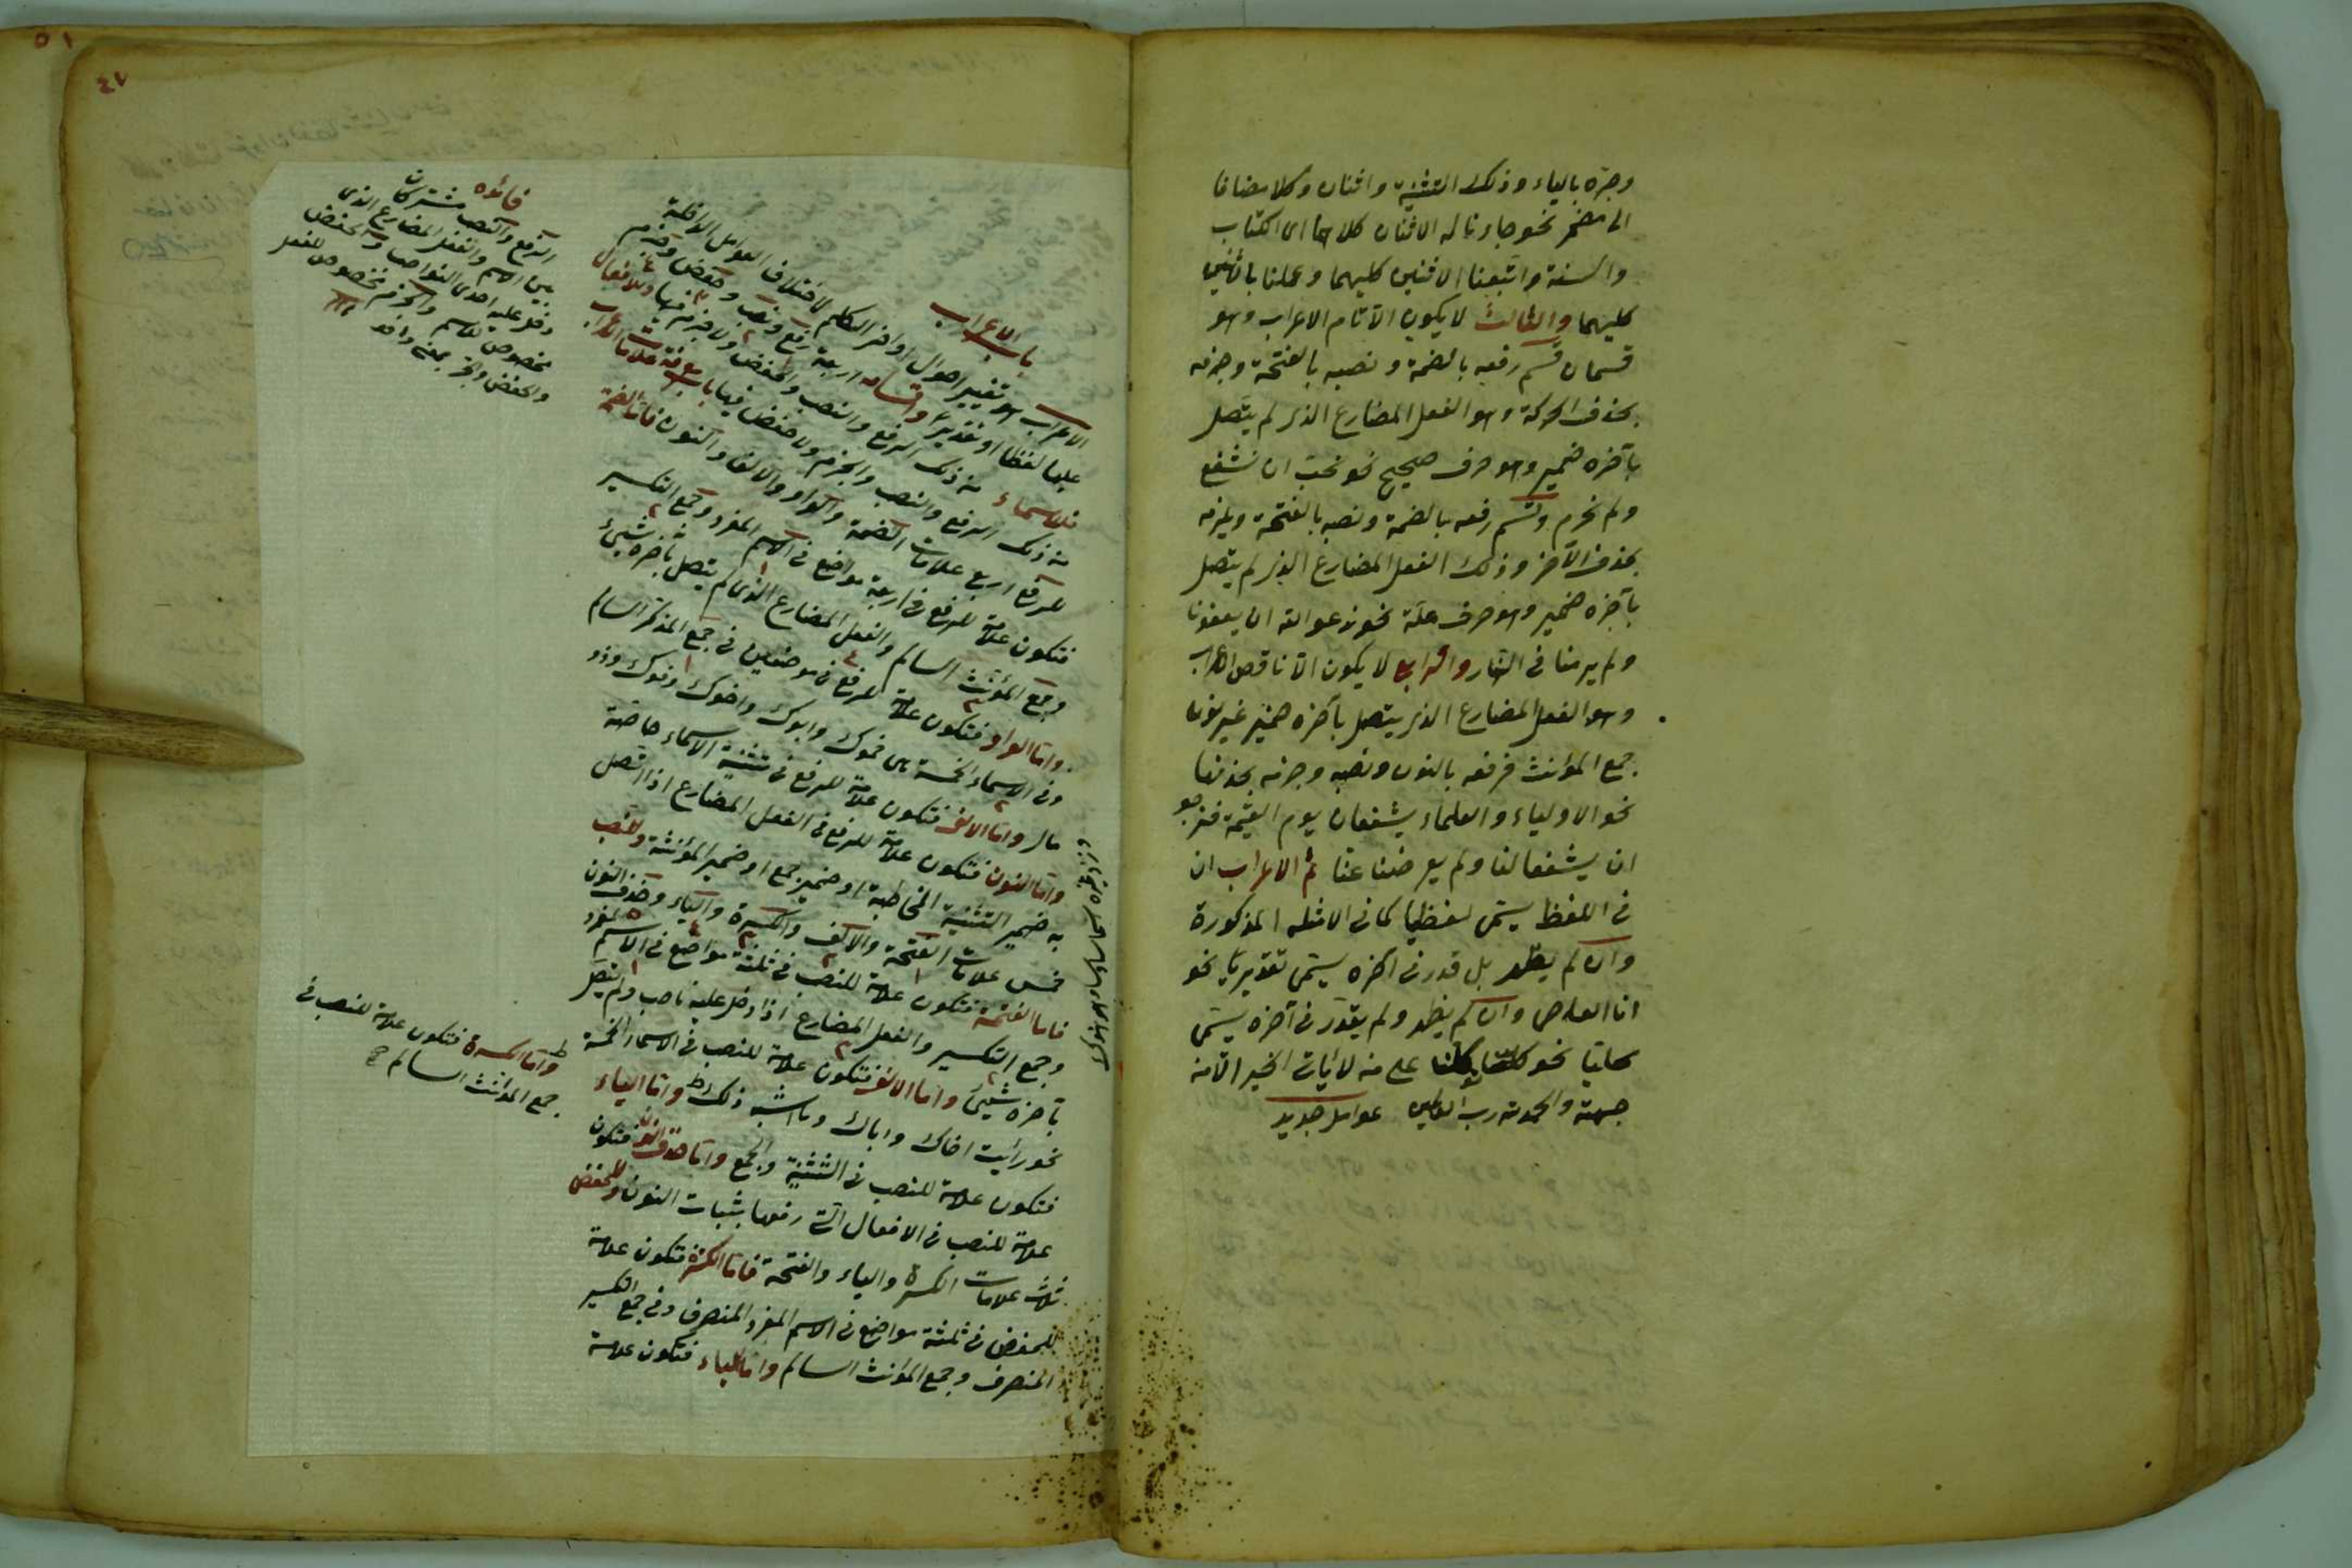 وجره بالياء وذلك التثنية واثنان وكلا مضافا
الى مضمر نحو جاءنا له الاثنان كلاهما اى الكتاب
والسنة واتبعنا الاثنين كليهما وعملنا باثنين
كليهما والثالث لا يكون الا تام الاعراب وهو
قسمان قسم رفعه بالضمة ونصبه بالفتحة وجزمه
بحذف الحركة وهو الفعل المضارع الذى لم يتصل
بآخره ضمير وهو حرف صحيح نحو نحب ان نشفع
ولم نحرم وقسم رفعه بالضمة ونصبه بالفتحة وجزمه
بحذف الآخر وذلك الفعل المضارع الذى لم يتصل
بآخره ضمير وهو حرف علة نحو ندعو الله ان يعفونا
ولم يرمنا فى النار والرابع لا يكون الا ناقص الاعراب
وهو الفعل المضارع الذى يتصل بآخره ضمير غير نون
جمع المؤنث فرفعه بالنون ونصبه وجزمه بحذفها
نحو الاولياء والعلماء يشفعان يوم القيمة فنرجو
ان يشفعا لنا ولم يعرضنا عنا ثم الاعراب ان
فى اللفظ يسمى لفظيا كما فى الامثلة المذكورة
وان لم يظهر بل قدر فى اخره يسمى تقديريا نحو
انا العاصى وان لم يظهر ولم يقدر فى آخره يسمى
محليا نحو على من لا يأت الخير الا منه
جهته والحمد لله رب العالمين عوامل جديد
٤٧
٥١
باب الاعراب
الاعراب هو تغيير احوال اواخر الكلم لاختلاف العوامل الداخلة
عليها لفظا او تقديرا واقسامه اربعة رفع ونصب وخفض وجزم
فللاسماء من ذلك الرفع والنصب والخفض ولا جزم فيها وللافعال
من ذلك الرفع والنصب والجزم ولا خفض فيها باب معرفة علامات الاعراب
للرفع اربع علامات الضمة والواو والالف والنون فاما الضمة
فتكون علامة للرفع فى اربعة مواضع فى الاسم المفرد وجمع التكسير
وجمع المؤنث السالم والفعل المضارع الذى لم يتصل بآخره شيئ
واما الواو فتكون علامة للرفع فى موضعين فى جمع المذكر السالم
وفى الاسماء الخمسة وهى حموك وابوك واخوك وفوك وذو
مال واما الالف فتكون علامة للرفع فى تثنية الاسماء خاصة
واما النون فتكون علامة للرفع فى الفعل المضارع اذا اتصل
به ضمير التثنية او ضمير جمع او ضمير المؤنثة المخاطبة وللنصب
خمس علامات الفتحة والالف والكسرة والياء وحذف النون
فاما الفتحة فتكون علامة للنصب فى ثلثة مواضع فى الاسم المفرد
وجمع التكسير والفعل المضارع اذا دخل عليه ناصب ولم يتصل
بآخره شيئ واما الالف فتكون علامة للنصب فى الاسماء الخمسة
نحو رأيت اخاك واباك وما اشبه ذلك واما الياء
فتكون علامة للنصب فى التثنية والجمع واما حذف النون فتكون
علامة للنصب فى الافعال التى رفعها بثبات النون وللخفض
ثلاث علامات الكسرة والياء والفتحة فاما الكسرة فتكون علامة
للخفض فى ثلثة مواضع فى الاسم المفرد المنصرف وفى جمع التكسير
المنصرف وجمع المؤنث السالم واما الياء فتكون علامة
فائده
الرفع والنصب مشتركان
بين الاسم والفعل المضارع الذى
دخل عليه احدى النواصب والخفض
مخصوص للاسم والجزم مخصوص للفعل
والخفض والجر بمعنى واحد
واما الكسرة فتكون علامة للنصب فى
جمع المؤنث السالم